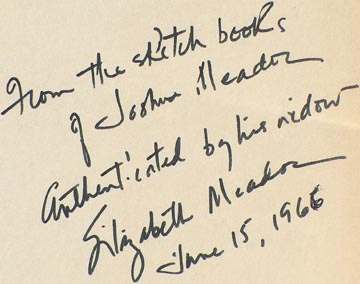 From the sketch books
of Joshua Meador
Authenticated by his widow
Elizabeth Meador
June 15, 1966